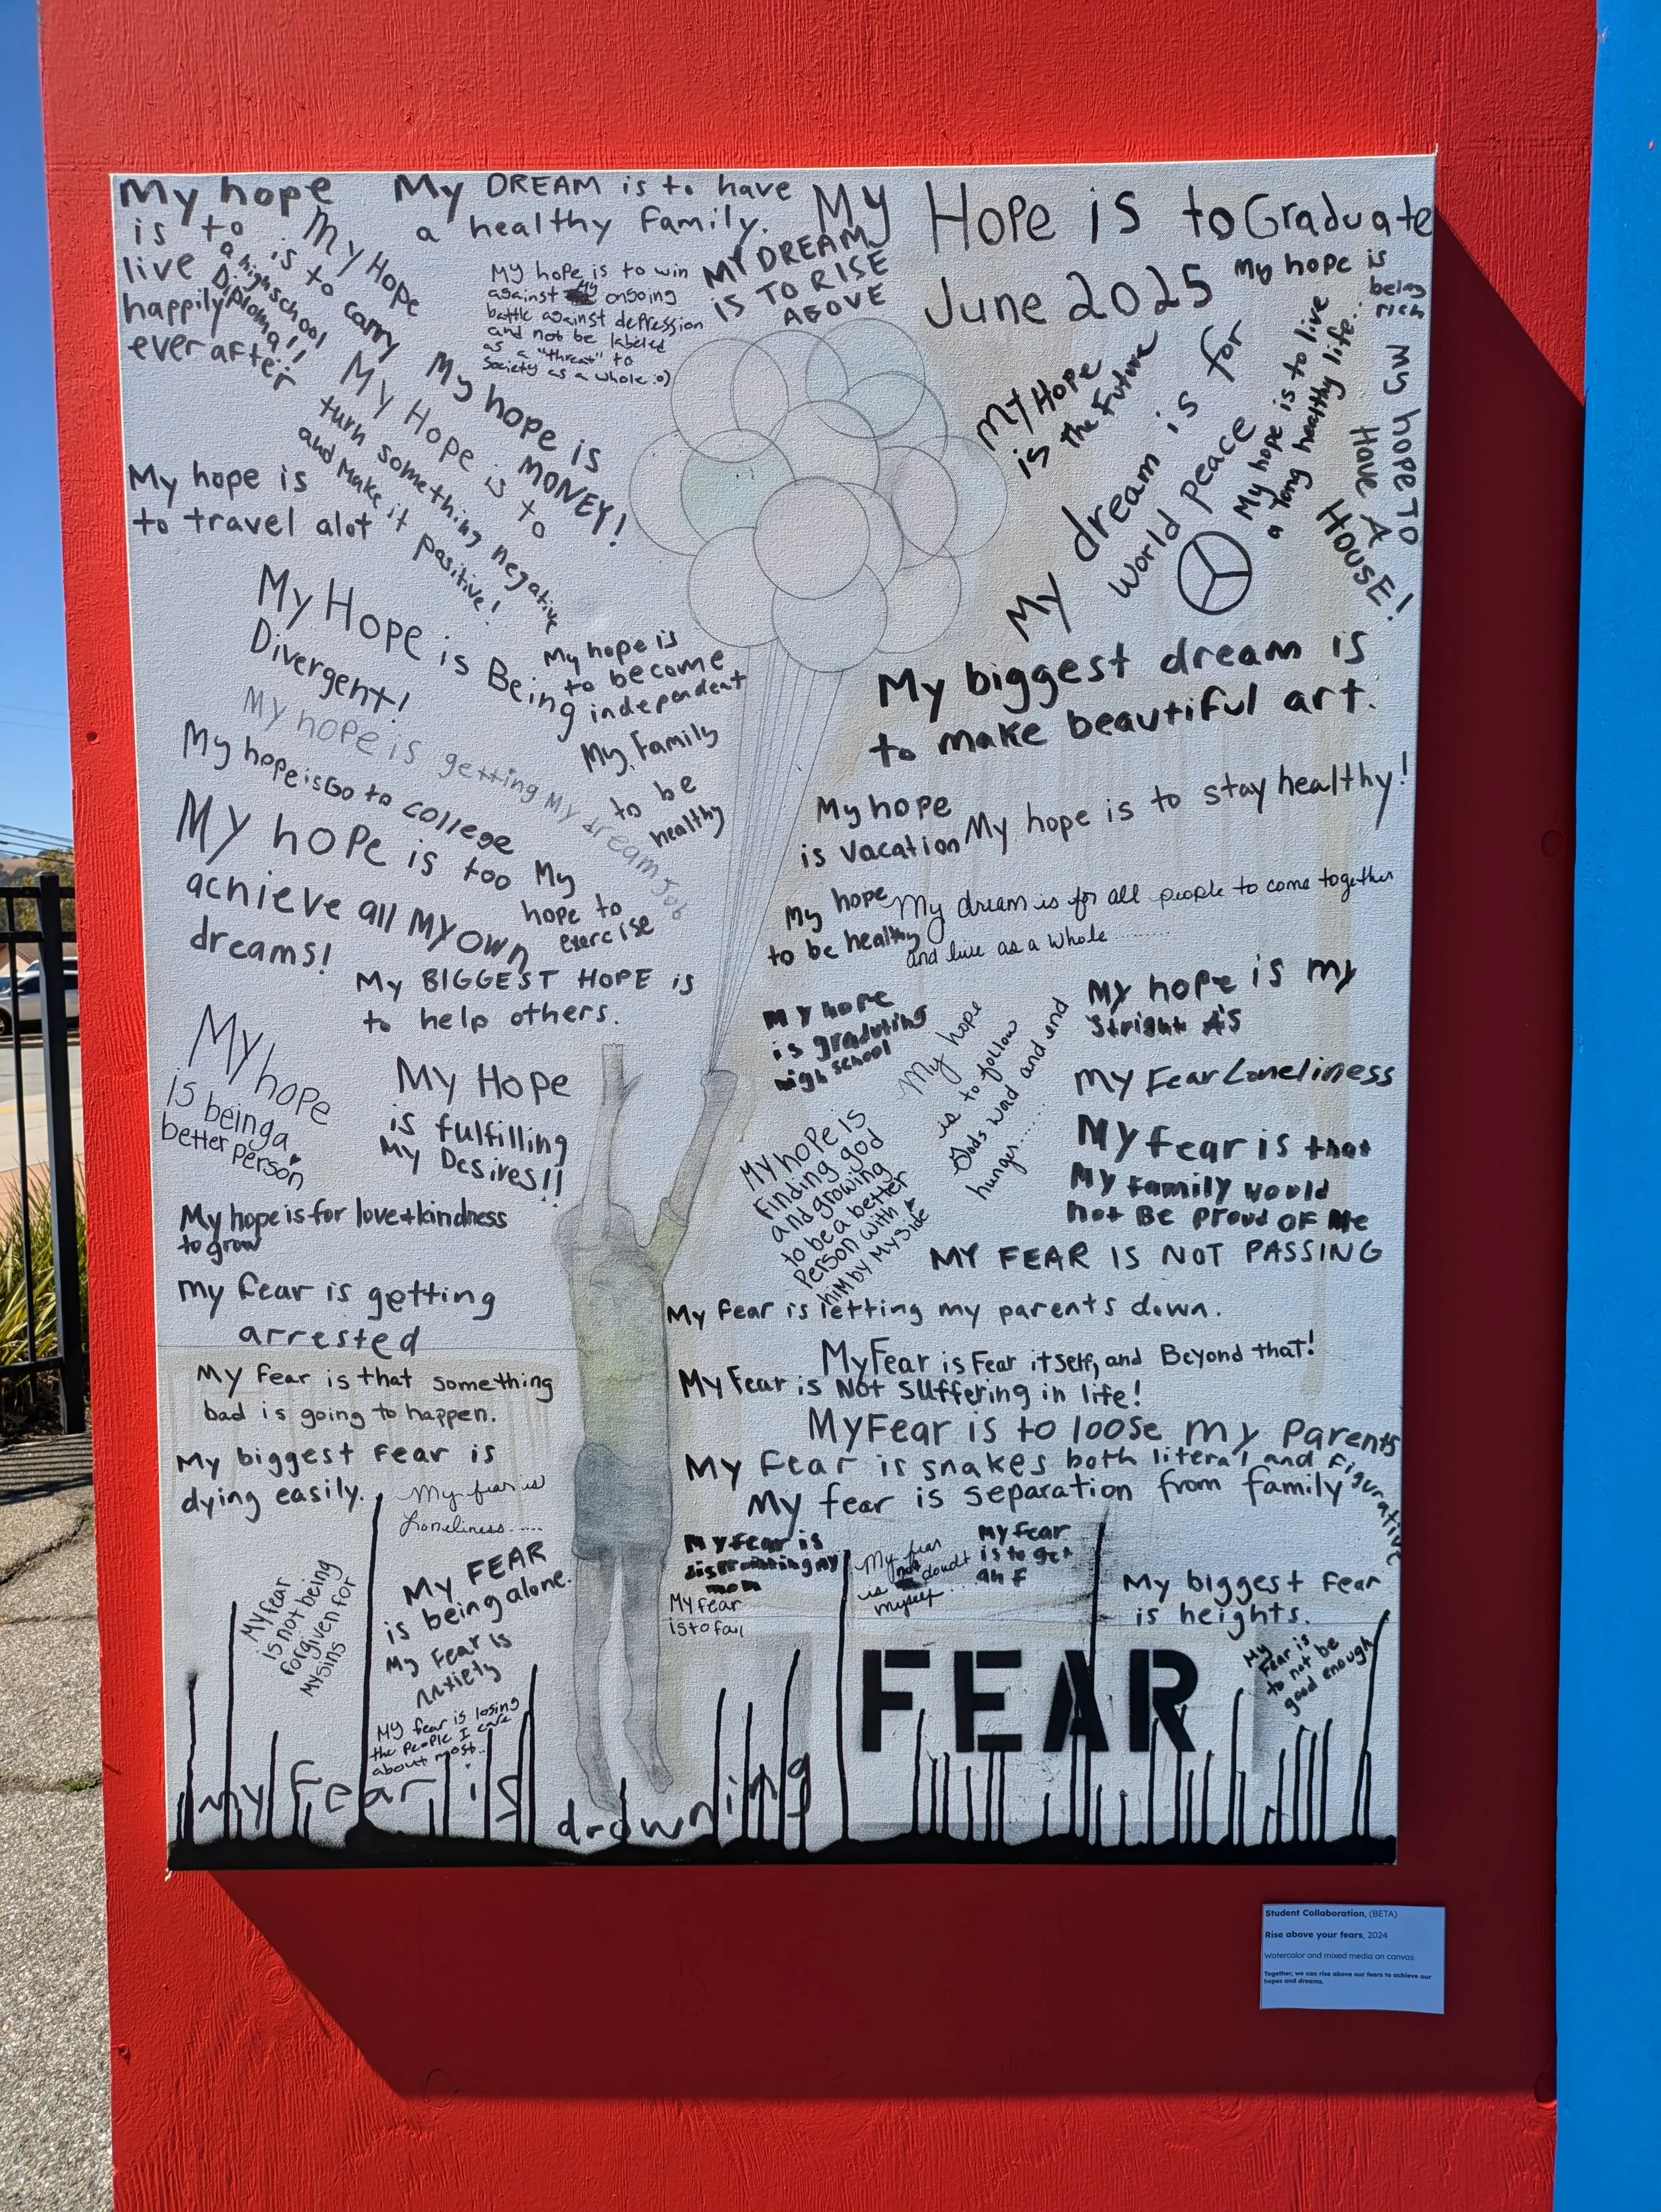 My hope
is to
live
happily
ever after
My Hope
is to carry
a highschool
Diploma!!
My DREAM is to have
a healthy family.
My hope is to win
against My ongoing
battle against depression
and not be labeled
as a "threat" to
society as a whole :o)
MY DREAM
IS TO RISE
ABOVE
My Hope is to Graduate
June 2025
My hope is
being
rich
My Hope is to
turn something negative
and Make it positive!
My hope is
MONEY!
My hope is
to travel alot
My Hope
is the Future
My dream is for
World peace
My hope is to live
a long healthy life..
My hope TO
HAVE A
HOUSE!
My Hope is Being
Divergent!
My hope is
to become
independent
My biggest dream is
to make beautiful art.
My hope is getting My dream Job
My Family
to be
healthy
My hope is Go to college
My hope is too
achieve all My own
dreams!
My
hope to
exercise
My hope
is vacation
My hope is to stay healthy!
My hope
to be healthy
My dream is for all people to come together
and live as a whole..........
My BIGGEST HOPE is
to help others.
My hope
is graduting
high school
My hope is my
Stright A's
My hope
is being a
better person
My Hope
is fulfilling
My Desires!!
My hope
is to follow
Gods word and end
hunger......
My hope is
finding god
and growing
to be a better
Person with
him by My side
My Fear Loneliness
My fear is that
My family would
not Be proud OF Me
My hope is for love + kindness
to grow
MY FEAR IS NOT PASSING
my fear is getting
arrested
My fear is letting my parents down.
My Fear is Fear itself, and Beyond that!
My fear is that something
bad is going to happen.
My Fear is Not suffering in life!
My Fear is to loose my Parents
My biggest fear is
dying easily.
My fear is snakes both literal and figurative
My fear is separation from family
My fear is
Loneliness.....
My fear is
my
mom
My fear
is not doubt
myself....
My fear
is to get
an F
My FEAR
is being alone.
My fear
is to fail
My biggest fear
is heights.
My fear
is not being
forgiven for
my sins
My Fear is
Anxiety
My
fear is
to not be
good enough
My fear is losing
the people I care
about most...
FEAR
my fear is drowning
Student Collaboration, (BETA)
Rise above your fears, 2024
Watercolor and mixed media on canvas
Together, we can rise above our fears to achieve our
hopes and dreams.